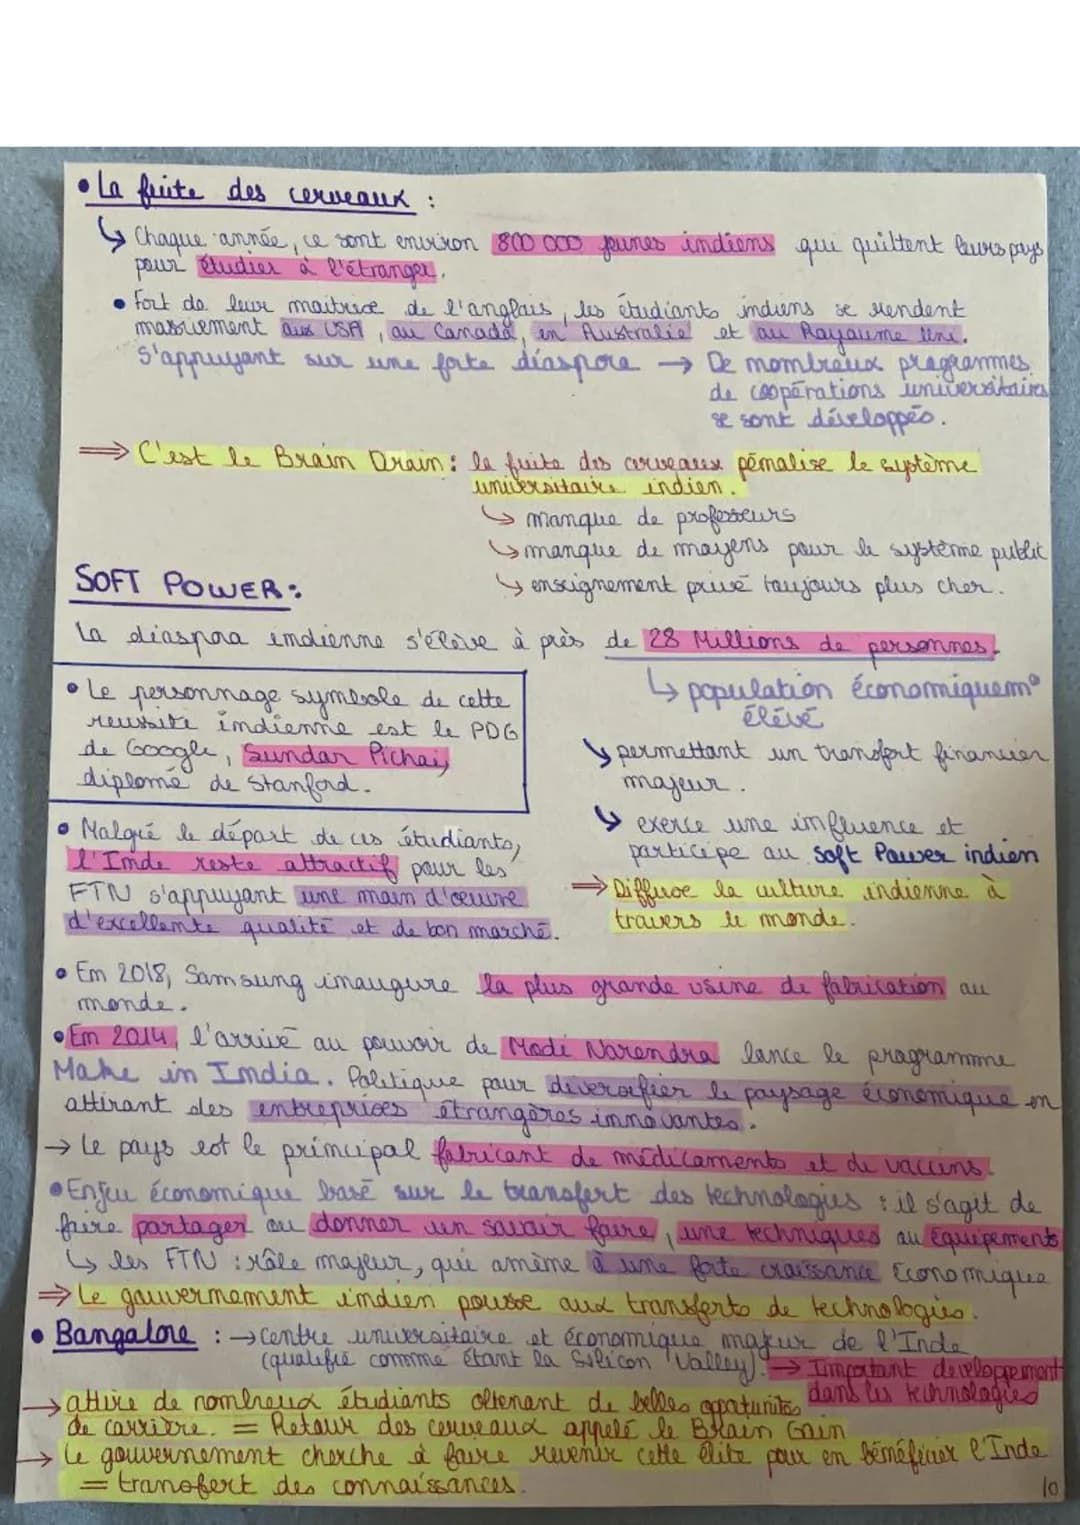 • La fuite des cerveaux :
↳ Chaque année, ce sont environ 800 000 jeunes indiens qui quittent leurs pays
pour étudier à l'étranger.
• Fort de leur maitrise de l'anglais, les étudiants indiens se rendent
massivement aux USA, au Canada, en Australie et au Royaume Uni.
S'appuyant sur une forte diaspora → De nombreux programmes
de coopérations universitaires
se sont développés.
⇒ C'est le Brain Drain : la fuite des cerveaux pénalise le système
universitaire indien.
↳ manque de professeurs
↳ manque de moyens pour le système public
↳ enseignement privé toujours plus cher.
SOFT POWER :
La diaspora indienne s'élève à près de 28 Millions de personnes.
↳ population économiquemᵗ
élévé
• Le personnage symbole de cette
reussite indienne est le PDG
de Google, Sundar Pichai,
diplomé de Stanford.
↳ permettant un transfert financier
majeur.
↳ exerce une influence et
participe au Soft Power indien
⇒ Diffuse la culture indienne à
travers le monde.
• Malgré le départ de ces étudiants,
l'Inde reste attractif pour les
FTN s'appuyant une main d'œuvre
d'excellente qualité et de bon marché.
• En 2018, Samsung inaugure la plus grande usine de fabrication au
monde.
• En 2014, l'arrivé au pouvoir de Modi Narendra lance le programme
Make in India. Politique pour diversifier le paysage économique en
attirant des entreprises étrangères innovantes.
→ Le pays est le principal fabricant de médicaments et de vaccins.
• Enjeu économique basé sur le transfert des technologies : il s'agit de
faire partager ou donner un savoir faire, une techniques ou équipements
↳ les FTN : rôle majeur, qui amène à une forte croissance économique
⇒ Le gouvernement indien pousse aux transferts de technologies.
• Bangalore : → Centre universitaire et économique majeur de l'Inde
(qualifié comme étant la Silicon Valley). → Important developpement
dans les technologies
→ attire de nombreux étudiants obtenant de belles opportunités
de carrière. = Retour des cerveaux appelé le Brain Gain
→ Le gouvernement cherche à faire revenir cette élite pour en bénéficier l'Inde
= transfert des connaissances.
10